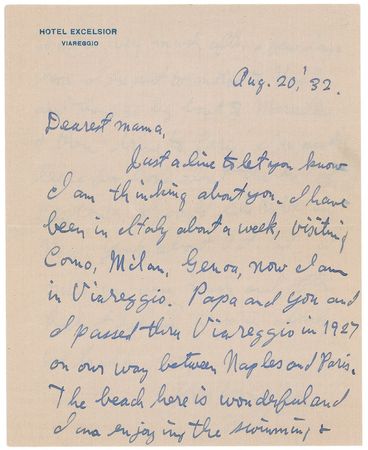 HOTEL EXCELSIOR
VIAREGGIO
Aug. 20,' 32.
Dearest mama,
Just a line to let you know
I am thinking about you. I have
been in Italy about a week, visiting
Como, Milan, Genoa, now I am
in Viareggio. Papa and you and
I passed thru Viareggio in 1927
on our way between Naples and Paris.
The beach here is wonderful and
I ma enjoying the swimming &